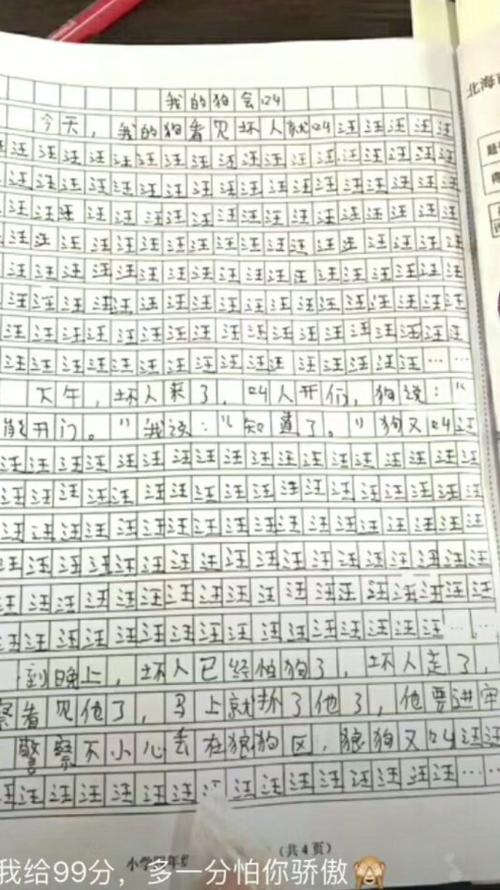 我的狗会叫
今天，我的狗看见坏人就叫汪汪汪汪汪
汪汪汪汪汪汪汪汪汪汪汪汪汪汪汪汪汪汪汪
汪汪汪汪汪汪汪汪汪汪汪汪汪汪汪汪汪汪汪
汪汪汪汪汪汪汪汪汪汪汪汪汪汪汪汪汪汪汪
汪汪汪汪汪汪汪汪汪汪汪汪汪汪汪汪汪汪汪
汪汪汪汪汪汪汪汪汪汪汪汪汪汪汪汪汪汪汪
汪汪汪汪汪汪汪汪汪汪汪汪汪汪汪汪汪汪汪
汪汪汪汪汪汪汪汪汪汪汪汪汪汪汪汪汪汪汪
汪汪汪汪汪汪汪汪汪汪汪汪汪汪汪汪汪……
下午，坏人来了，叫人开们，狗说：“
能开门。”我说：“知道了。”狗又叫汪
汪汪汪汪汪汪汪汪汪汪汪汪汪汪汪汪汪汪汪
汪汪汪汪汪汪汪汪汪汪汪汪汪汪汪汪汪汪汪
汪汪汪汪汪汪汪汪汪汪汪汪汪汪汪汪汪汪汪
汪汪汪汪汪汪汪汪汪汪汪汪汪汪汪汪汪汪汪
汪汪汪汪汪汪汪汪汪汪汪汪汪汪汪汪汪汪汪
汪汪汪汪汪汪汪汪汪汪汪汪汪汪汪汪汪……
到晚上，坏人已经怕狗了，坏人走了，
察看见他了，马上就抓了他了，他要进牢
警察不小心丢在狼狗区，狼狗又叫汪汪
汪汪汪汪汪汪汪汪汪汪汪汪汪汪汪汪汪……
小学
(共4页)
北海
我给99分，多一分怕你骄傲🙈